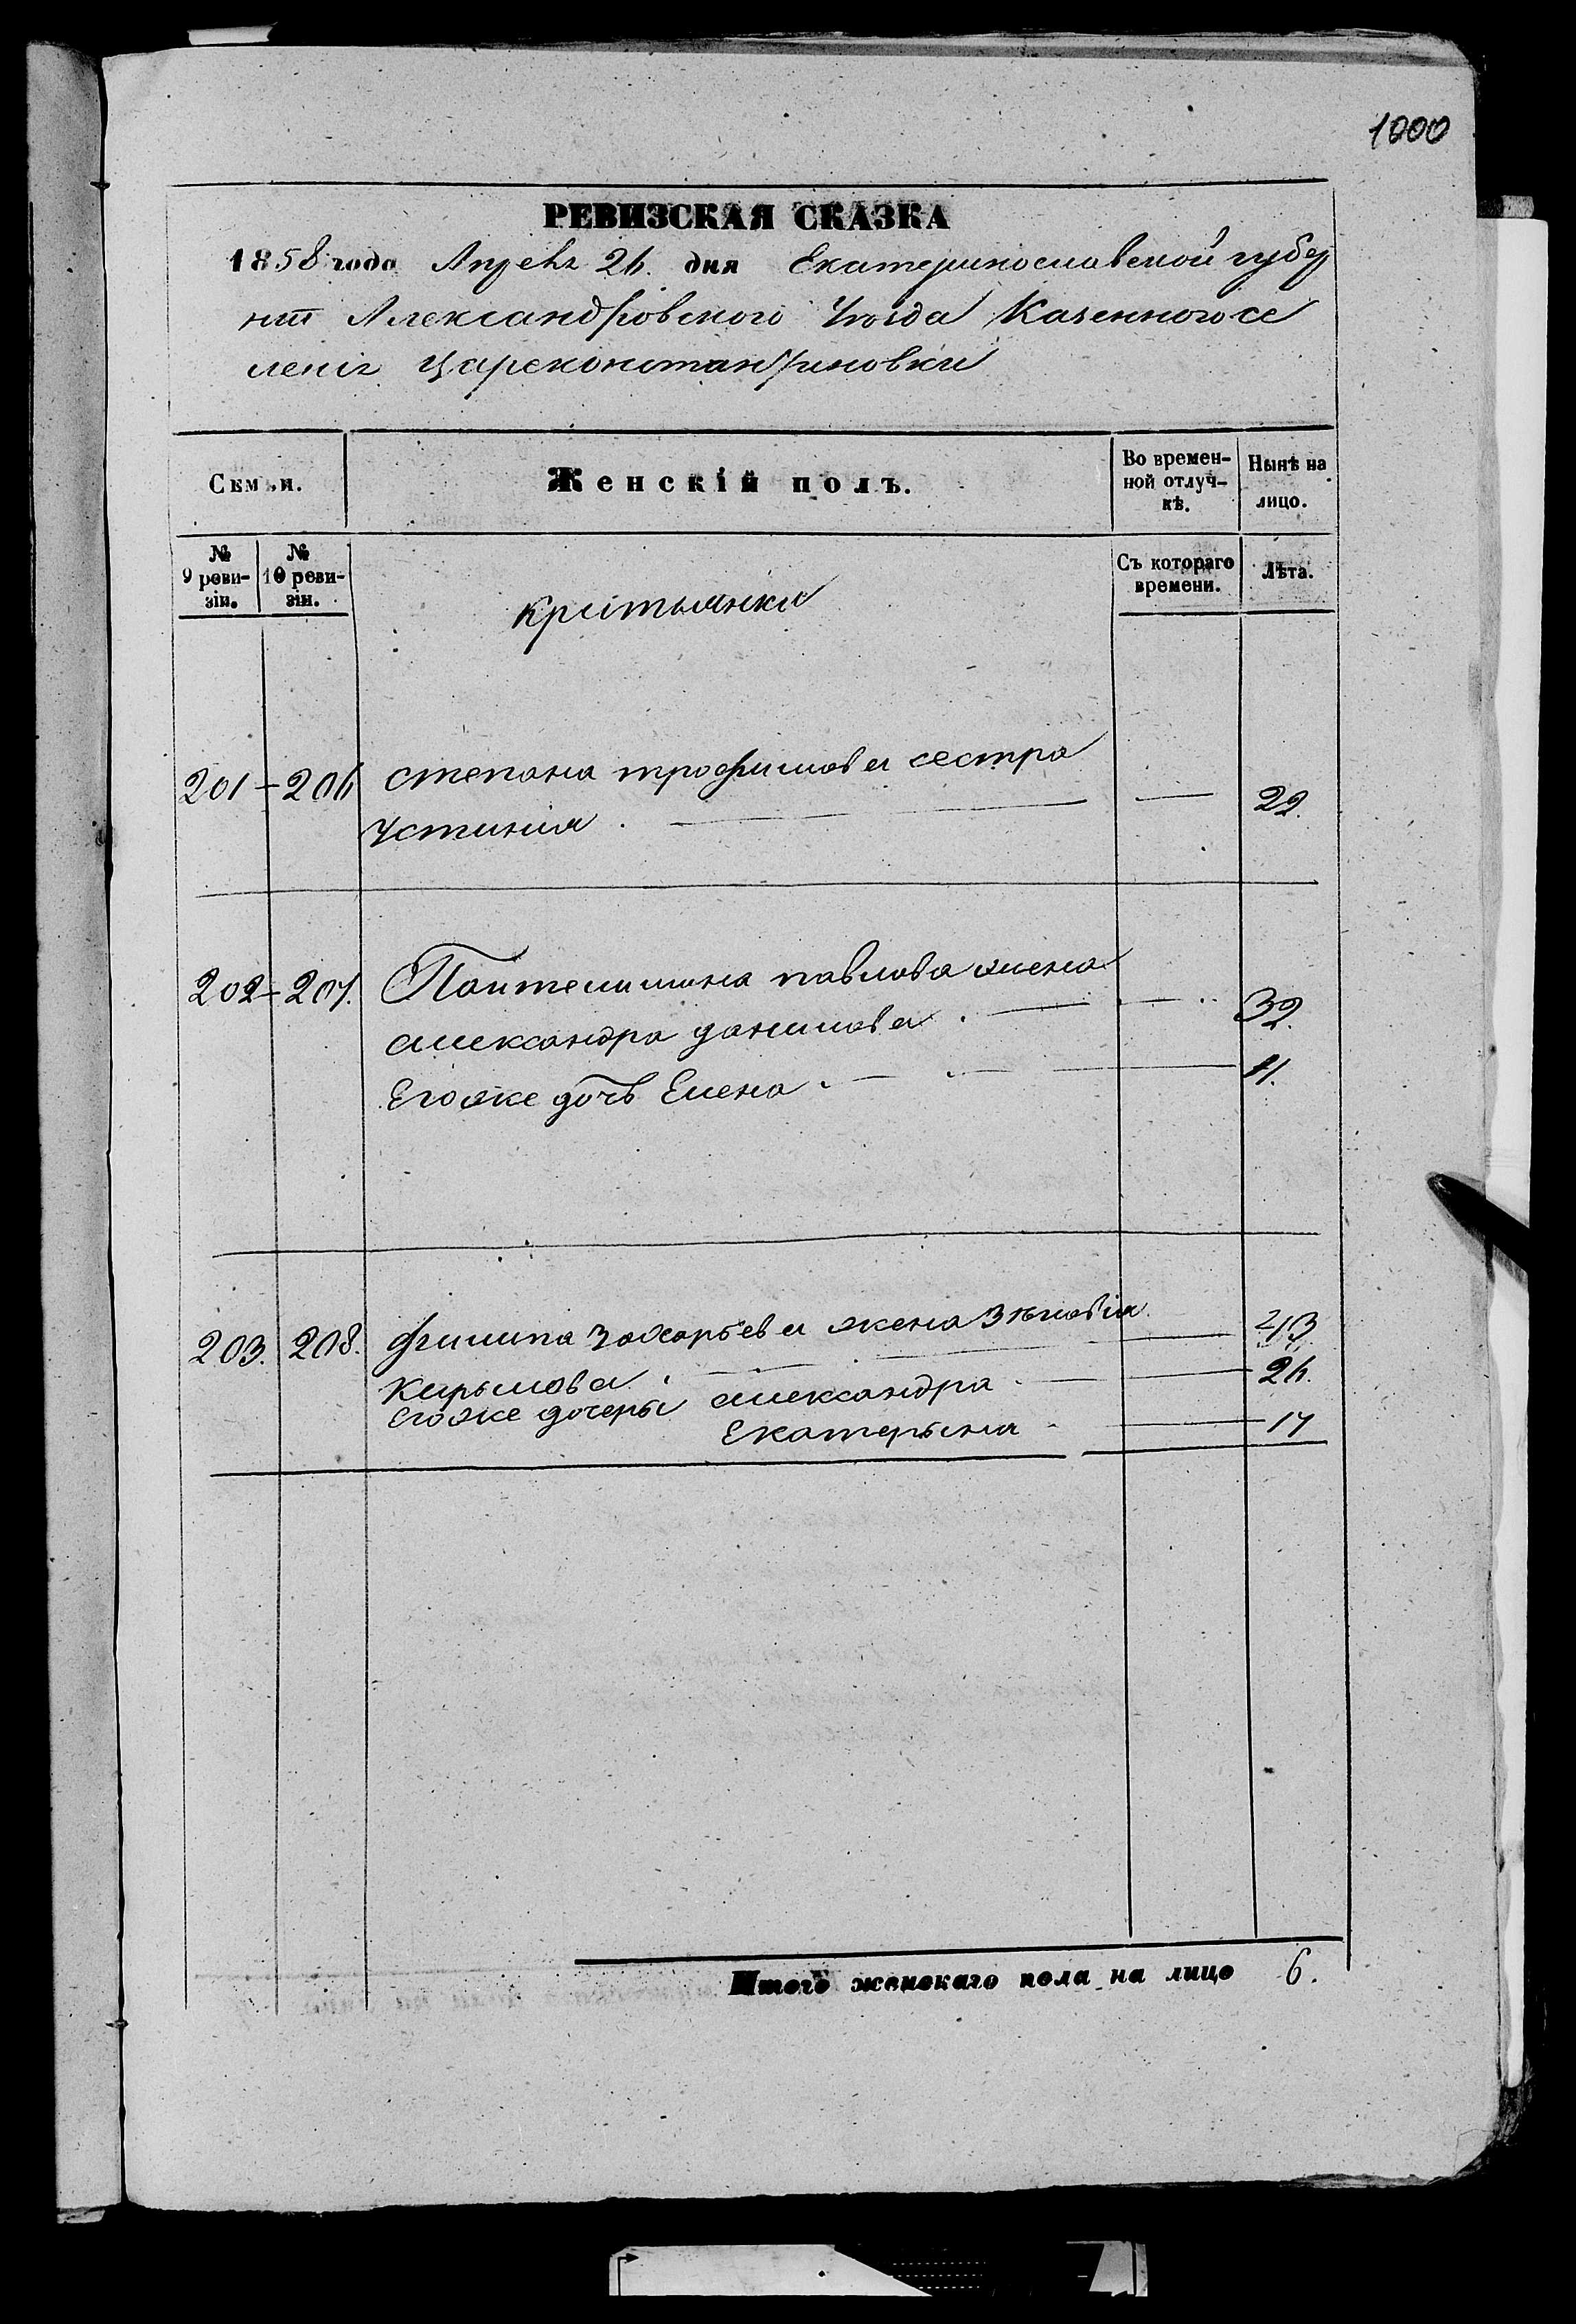 1000
РЕВИЗСКАЯ СКАЗКА
1858 года Апреля 26. дня Екатеринославской губер
нии Александровского Уезда Казенного се
ления Цареконстантиновки
Семьи.
Женскій полъ.
Во времен-
ной отлуч-
кѣ.
Нынѣ на
лицо.
№
9 реви-
зіи.
№
10 реви-
зіи.
Съ котораго
времени.
Лѣта.
крестьянки
201 - 206 степана трофимова сестра
Устиния . — — 22.
202 - 207. Пантелимона павлова жена
александра данилова . — — 32.
Егоже дочь Елена . — — 11.
203. 208. филипа захарьева жена Зѣновія
Кирылова . — — 43
Егоже дочеры александра — 26.
Екатерына — 17
Итого женскаго пола на лицо 6.